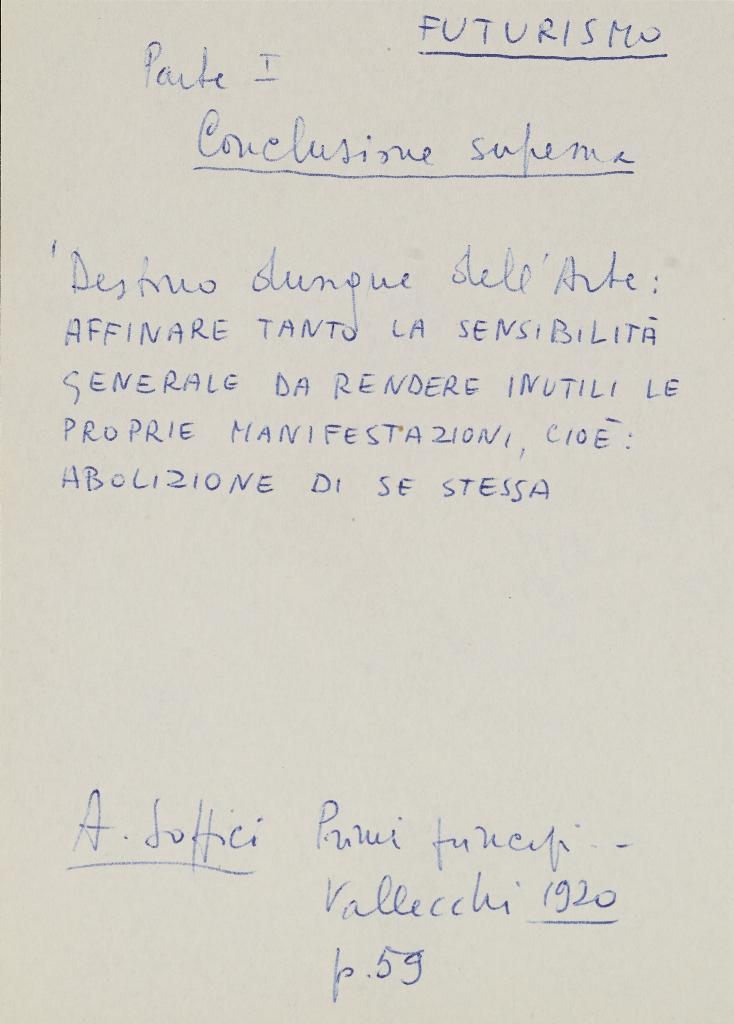 FUTURISMO
Parte I
Conclusione suprema
'Destino dunque dell'Arte:
AFFINARE TANTO LA SENSIBILITÀ
GENERALE DA RENDERE INUTILI LE
PROPRIE MANIFESTAZIONI, CIOÈ:
ABOLIZIONE DI SE STESSA
A. Soffici Primi principi --
Vallecchi 1920
p.59